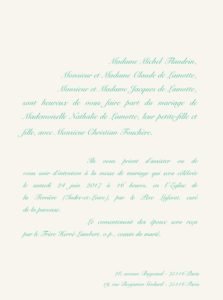 Madame Michel Flandrin,
Monsieur et Madame Claude de Lamotte,
Monsieur et Madame Jacques de Lamotte,
sont heureux de vous faire part du mariage de
Mademoiselle Nathalie de Lamotte, leur petite-fille et
fille, avec Monsieur Christian
Ils vous prient d'assister ou de
vous unir d'intention à la messe de mariage qui sera célébrée
le samedi 24 juin 2017 à 16 heures, en l'Eglise de
la Ferrière (Indre-et-Loire), par le Père
de la paroisse.
Le consentement des époux sera reçu
par le Frère Hervé Lambert, o.p., cousin du marié.
avenue Raymond - 75116 Paris
rue Benjamin Godard - 75116 Paris